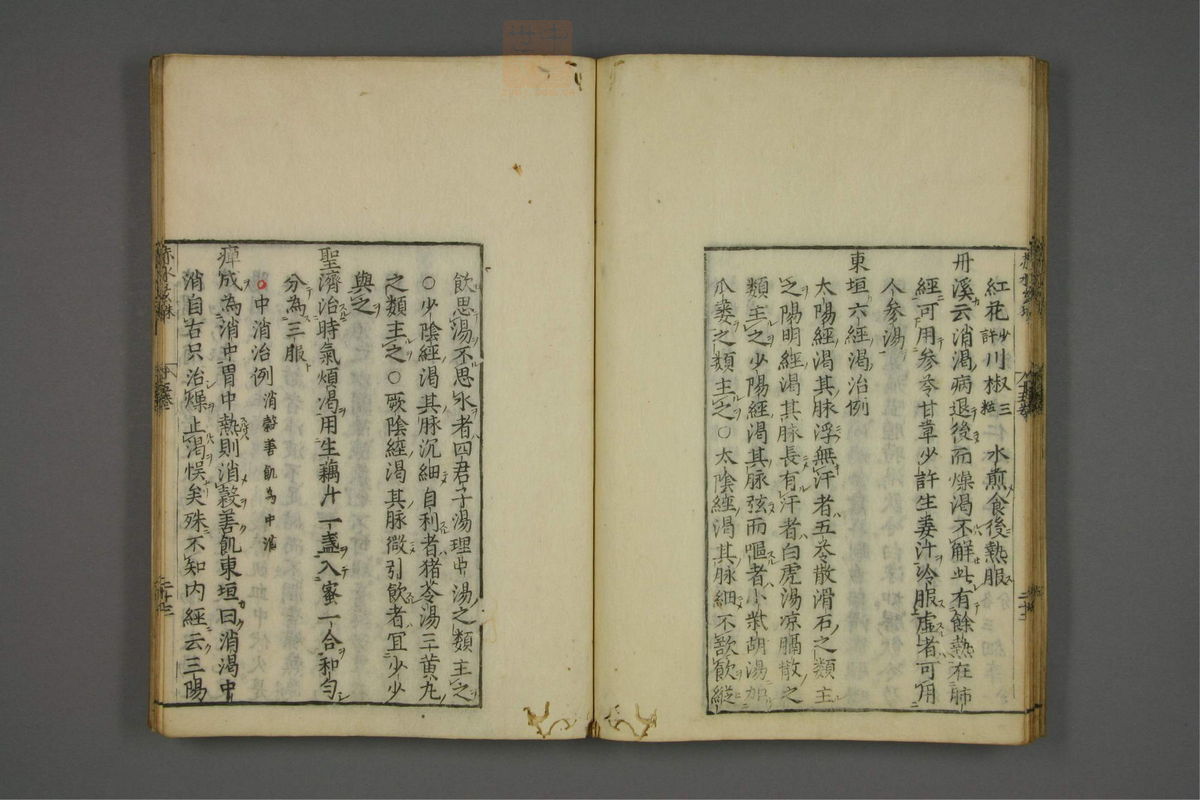 紅花少許川椒三粒水煎食後熱服
丹溪云消渴病退後而燥渴不解此有餘熱在肺
經可用參苓甘草少許生姜汁冷服虛者可用
人參湯
東垣六經渴治例
太陽經渴其脉浮無汗者五苓散滑石之類主
之陽明經渴其脉長有汗者白虎湯凉膈散之
類主之少陽經渴其脉弦而嘔者小柴胡湯加
瓜蔞之類主之○太陰經渴其脉細不欲飲縱
飲思湯不思水者四君子湯理中湯之類主之
○少陰經渴其脉沉細自利者猪苓湯三黄丸
之類主之○厥陰經渴其脉微引飲者宜少少
與之
聖濟治時氣煩渴用生藕汁一盞入蜜一合和勻
分為三服
中消治例消穀善飢為中消
癉成為消中胃中熱則消穀善飢東垣曰消渴中
消自古只治燥止渴悞矣殊不知内經云三陽